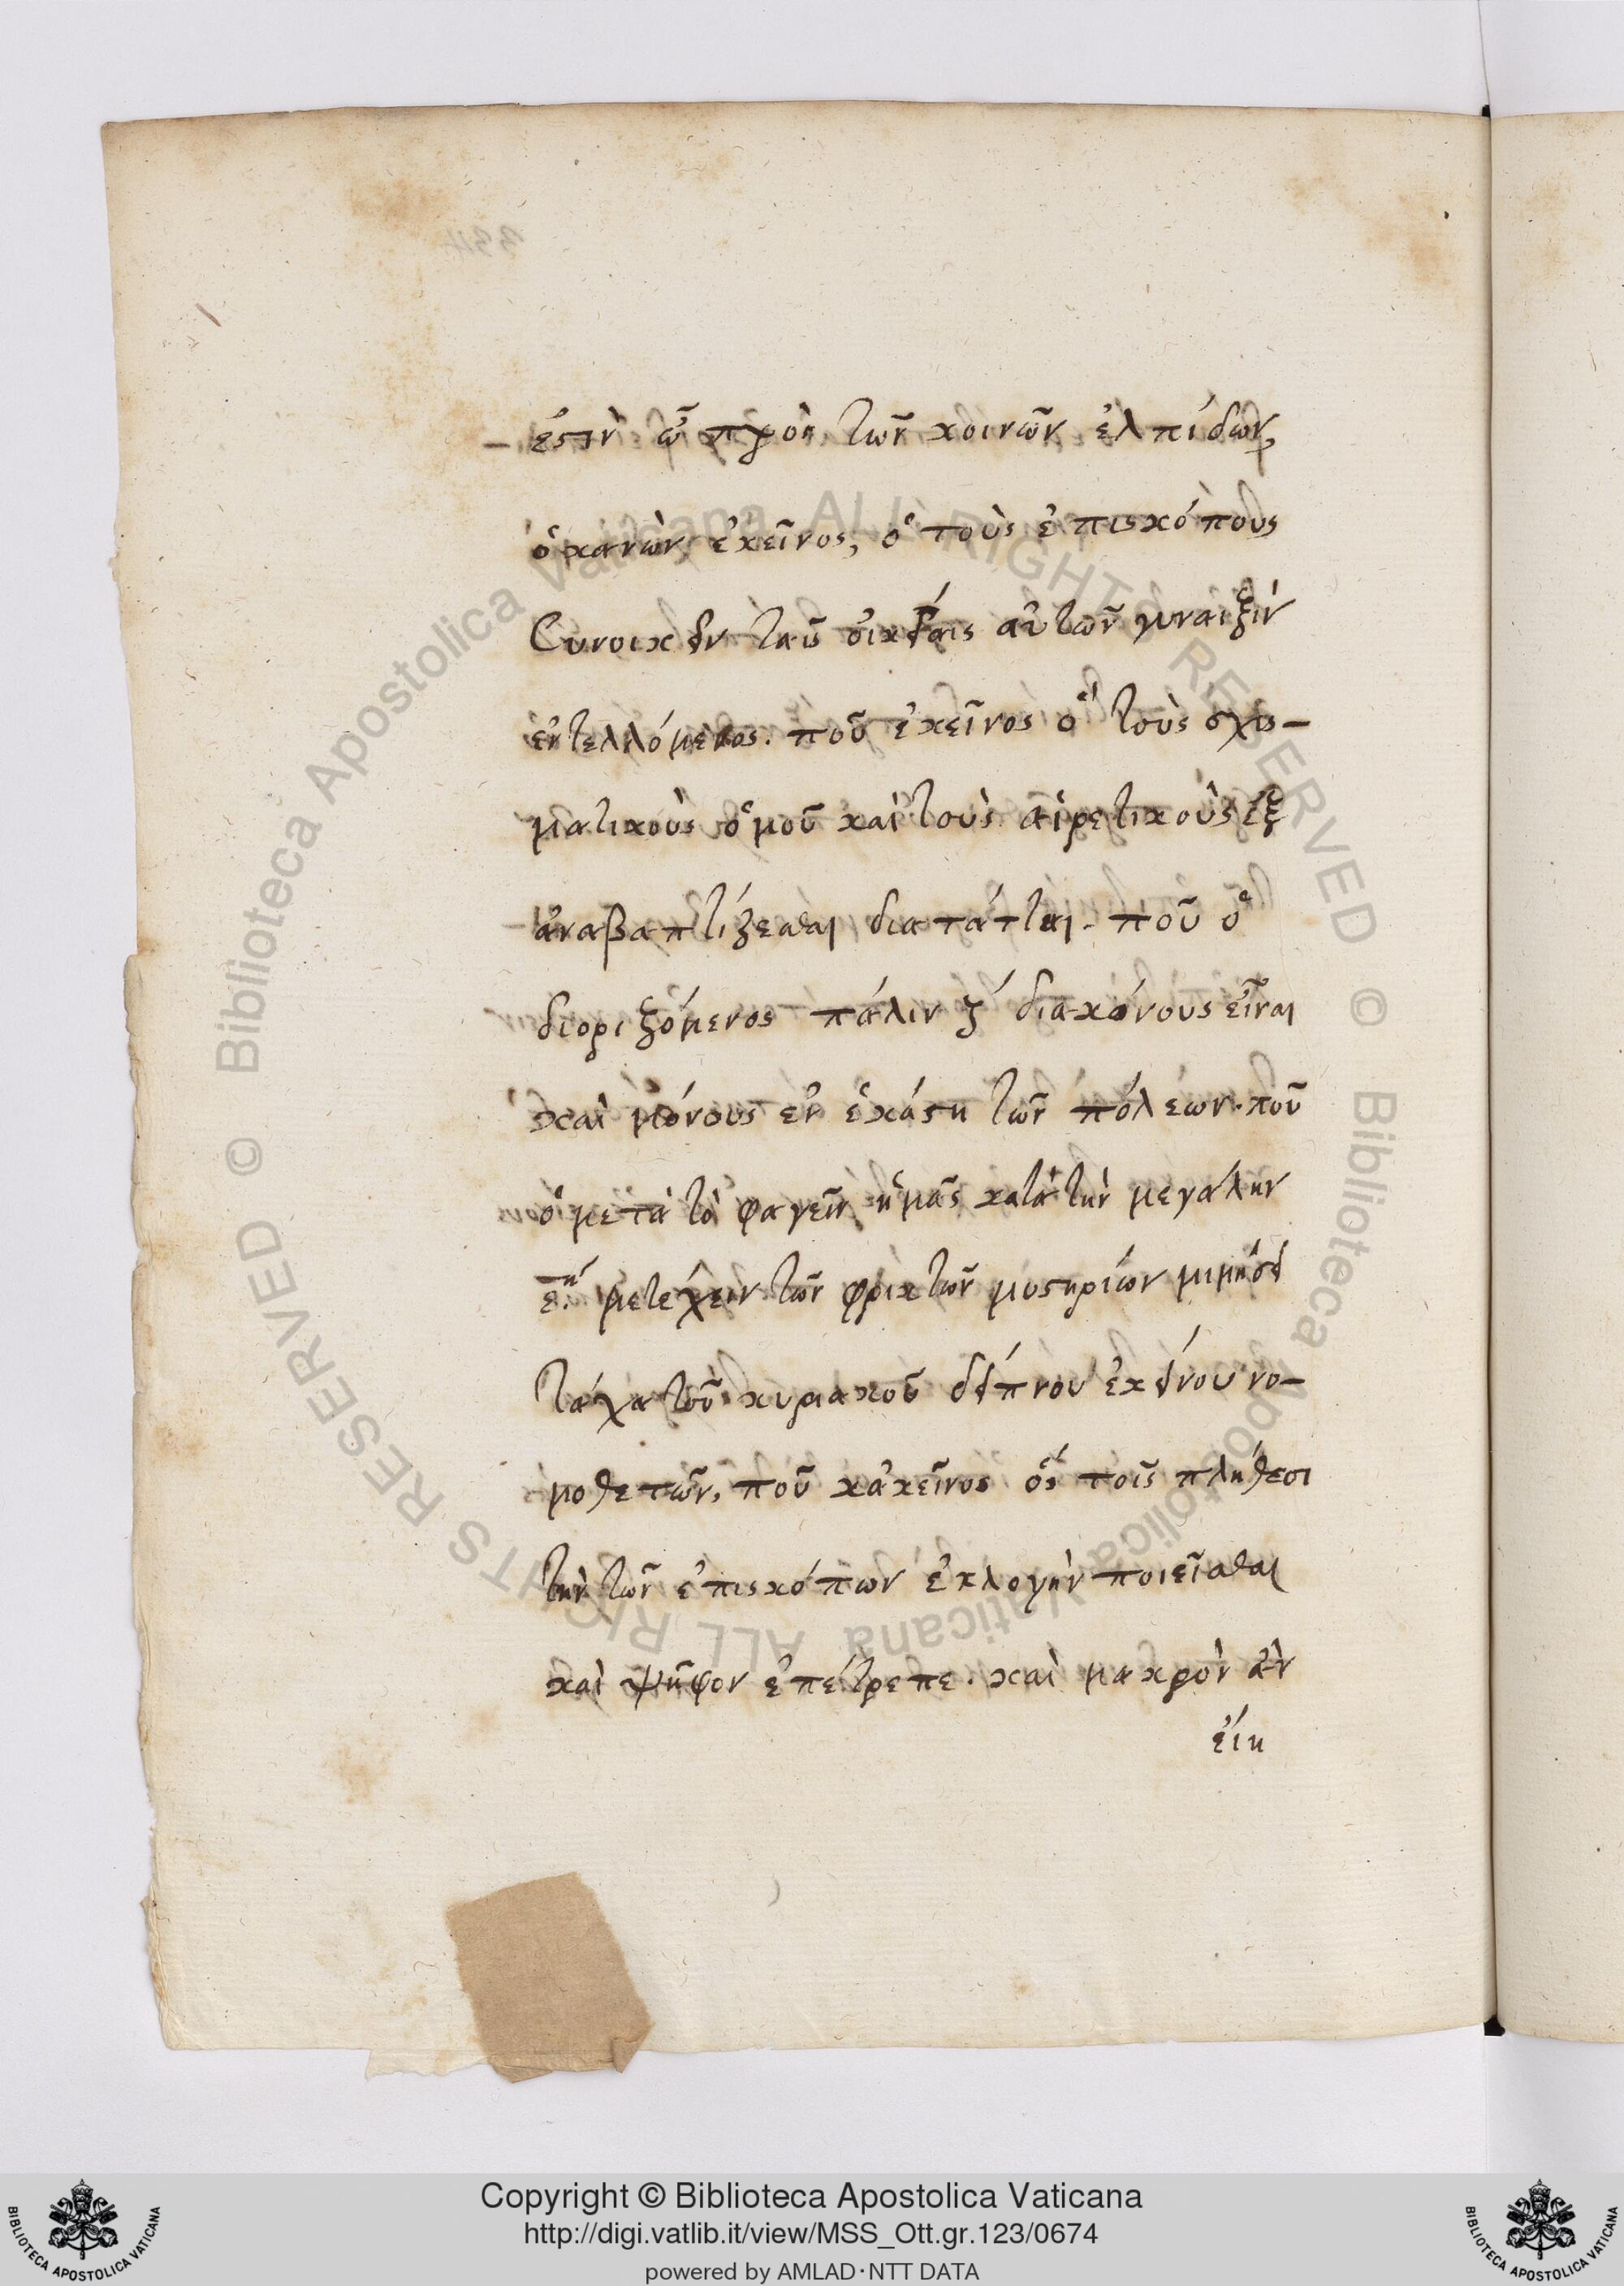 334
ἐστὶν ὦ πρὸς τῶν κοινῶν ἐλπίδων,
ὁ κανὼν ἐκεῖνος, ὁ τοὺς ἐπισκόπους
συνοικεῖν ταῖς οἰκείαις αὐτῶν γυναιξὶν
ἐντελλόμενος. ποῦ ἐκεῖνος ὁ τοὺς σχισ-
ματικοὺς ὁμοῦ καὶ τοὺς αἱρετικοὺς ἐξ
ἀναβαπτίζεσθαι διατάτται. ποῦ ὁ
διοριζόμενος πάλιν ζʹ διακόνους εἶναι
καὶ μόνους ἐν ἑκάστη τῶν πόλεων. ποῦ
ὁ μετὰ τὸ φαγεῖν ἡμᾶς κατὰ τὴν μεγάλην
εʹ. μετέχειν τῶν φρικτῶν μυστηρίων μιμήσει
τάχα τοῦ κυριακοῦ δείπνου ἐκείνου νο-
μοθετῶν, ποῦ κἀκεῖνος ὃς τοῖς πλήθεσι
τὴν τῶν ἐπισκόπων ἐκλογὴν ποιεῖσθαι
καὶ ψῆφον ἐπέτρεπε. καὶ μακρὸν ἂν
εἴη
Biblioteca Apostolica Vaticana ALL RIGHTS RESERVED ©
Biblioteca Apostolica Vaticana ALL RIGHTS RESERVED ©
Copyright © Biblioteca Apostolica Vaticana
http://digi.vatlib.it/view/MSS_Ott.gr.123/0674
powered by AMLAD·NTT DATA
BIBLIOTECA APOSTOLICA VATICANA
BIBLIOTECA APOSTOLICA VATICANA